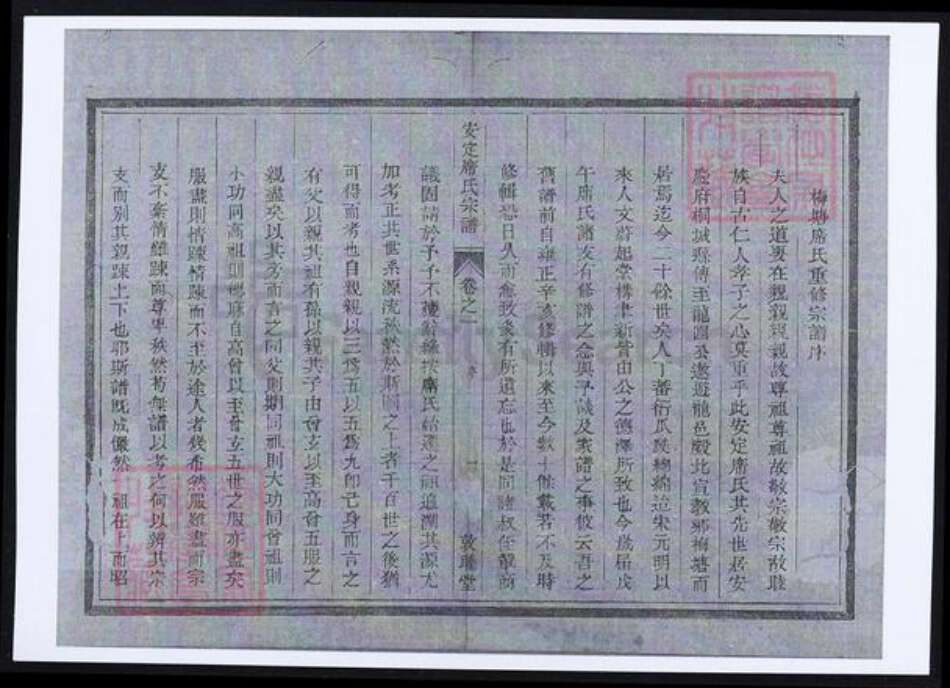 梅塘席氏重修宗譜序
夫人之道要在親親親親故尊祖尊祖故敬宗敬宗故睦
族自古仁人孝子之心莫重乎此安定席氏其先世居安
慶府桐城縣傳至龍圖公遨遊龍邑
居焉迄今二十餘世矣人丁蕃衍瓜瓞綿綿迨宋元明以
來人文蔚起堂構聿新皆由公之德澤所致也今歲
午席氏諸友有修譜之念與予談及家譜之事彼云吾之
舊譜前自雍正辛亥修輯以來至今數十餘載若不及時
修輯恐日久而愈致有所遺忘也於是
安定席氏宗譜
卷之一
序
一
敦睦堂
議固請於予予不獲辭緣按席氏始遷之祖追溯其源尤
加考正其世系源流秩然於斯圖之上者千百世之後猶
可得而考也自親親以三為五以五為九即己身而言之
有父以親其祖有孫以親其子由曾玄以至高曾五服之
親盡矣以其旁而言之同父則期同祖則大功同曾祖則
小功同高祖則緦麻自高曾以至曾玄五世之服亦盡矣
服盡則情踈情踈而不至於途人者幾希然服雖盡而宗
支不紊情雖踈而尊卑秩然苟無譜以考之何以辨其宗
支而別其親踈上下也耶斯譜既成儼然 祖在上而昭